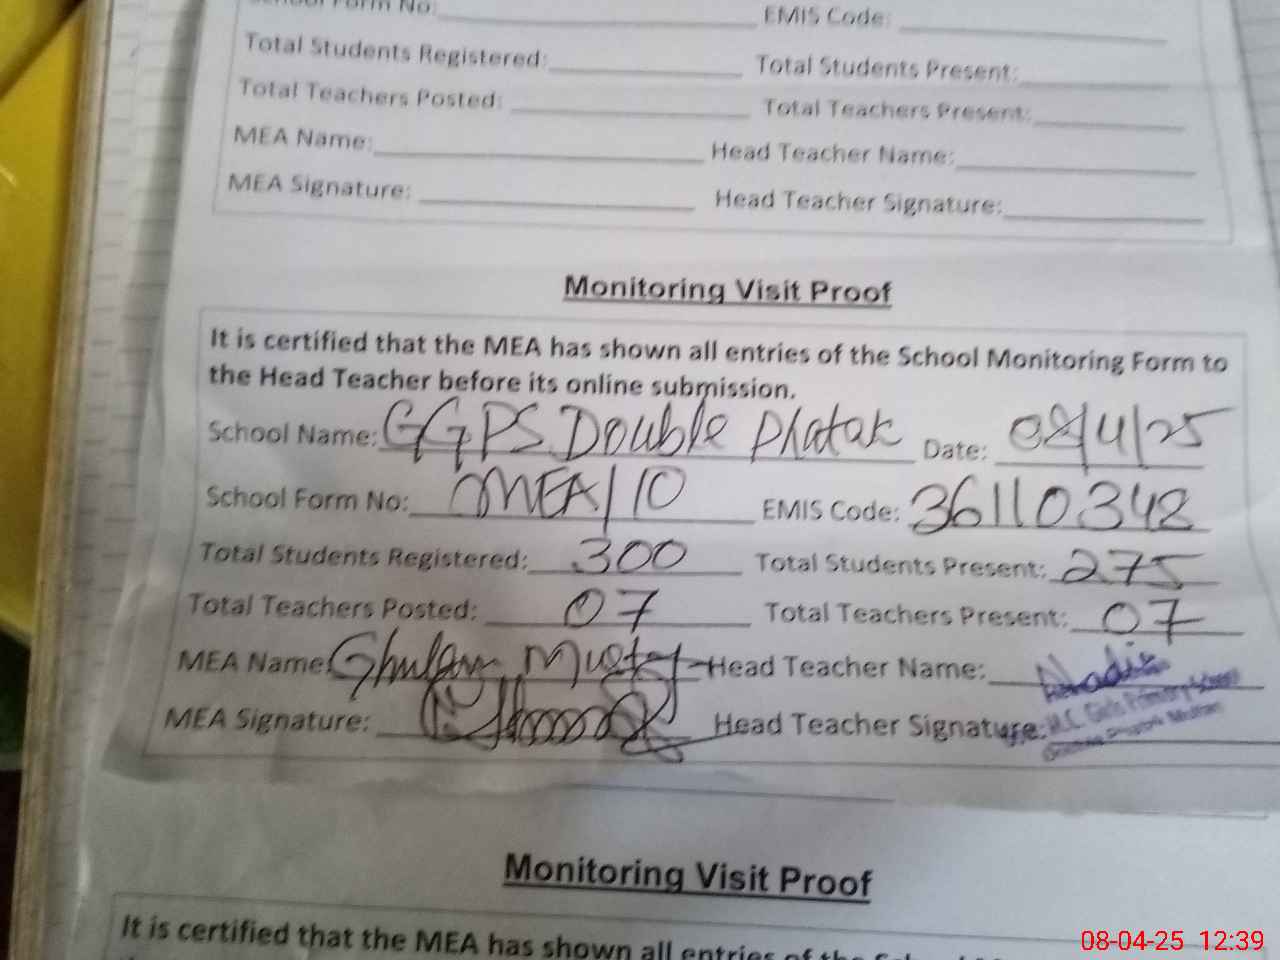 School Form No: EMIS Code:
Total Students Registered: Total Students Present:
Total Teachers Posted: Total Teachers Present:
MEA Name: Head Teacher Name:
MEA Signature: Head Teacher Signature:
Monitoring Visit Proof
It is certified that the MEA has shown all entries of the School Monitoring Form to
the Head Teacher before its online submission.
School Name: GGPS Double Phatak Date: 08/4/25
School Form No: MEA/10 EMIS Code: 36110348
Total Students Registered: 300 Total Students Present: 275
Total Teachers Posted: 07 Total Teachers Present: 07
MEA Name: Ghulam Mustafa Head Teacher Name: Nadia
MEA Signature: Head Teacher Signature:
M.C. Girls Primary School
Multan
Monitoring Visit Proof
It is certified that the MEA has shown all entries of the School
08-04-25 12:39